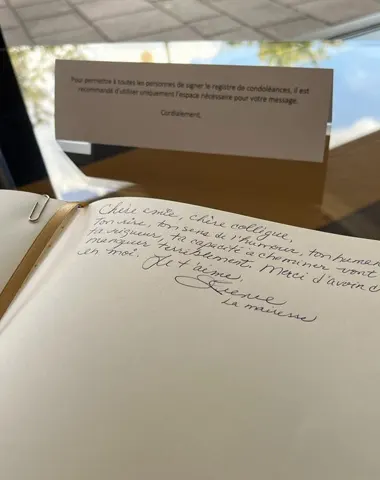 Pour permettre à toutes les personnes de signer le registre de condoléances, il est
recommandé d'utiliser uniquement l'espace nécessaire pour votre message.
Cordialement,
Chère amie, chère collègue,
Ton rire, ton sens de l'humour, ton
ta rigueur, ta capacité à cheminer vont
manquer terriblement. Merci d'avoir
en moi. Je t'aime.
La mairesse